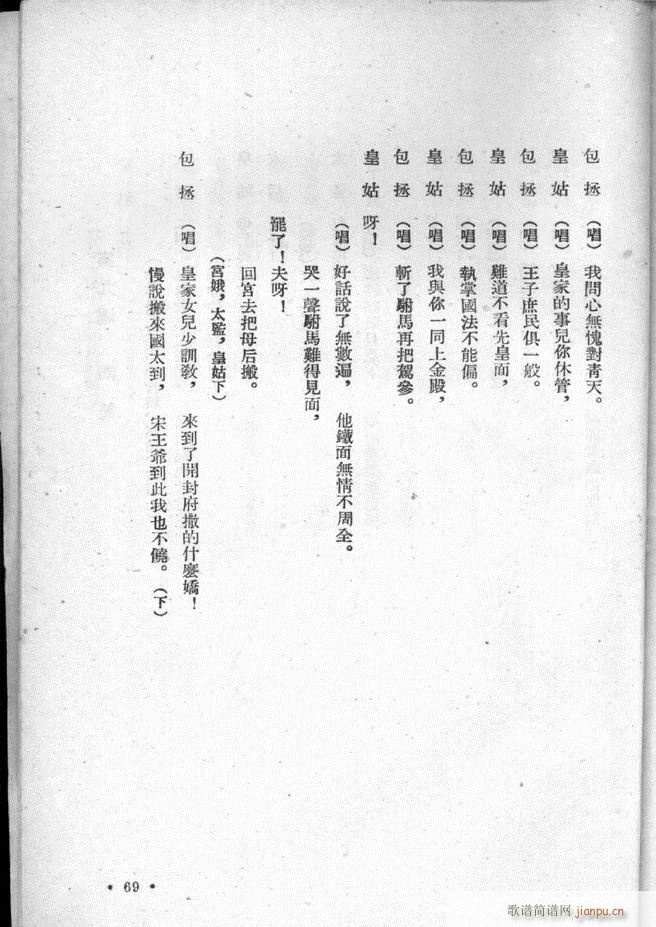 包拯（唱）我問心無愧對青天。
皇姑（唱）皇家的事兒你休管，
包拯（唱）王子庶民俱一般。
皇姑（唱）難道不看先皇面，
包拯（唱）執掌國法不能偏。
皇姑（唱）我與你一同上金殿，
包拯（唱）斬了駙馬再把駕參。
皇姑 呀！
（唱）好話說了無數遍，他鐵面無情不周全。
哭一聲駙馬難得見面，
罷了！夫呀！
回宮去把母后搬。
（宮娥，太監，皇姑下）
包拯（唱）皇家女兒少訓教，來到了開封府撒的什麼嬌！
慢說搬來國太到，宋王爺到此我也不饒。（下）
• 69 •
歌谱简谱网 jianpu.cn